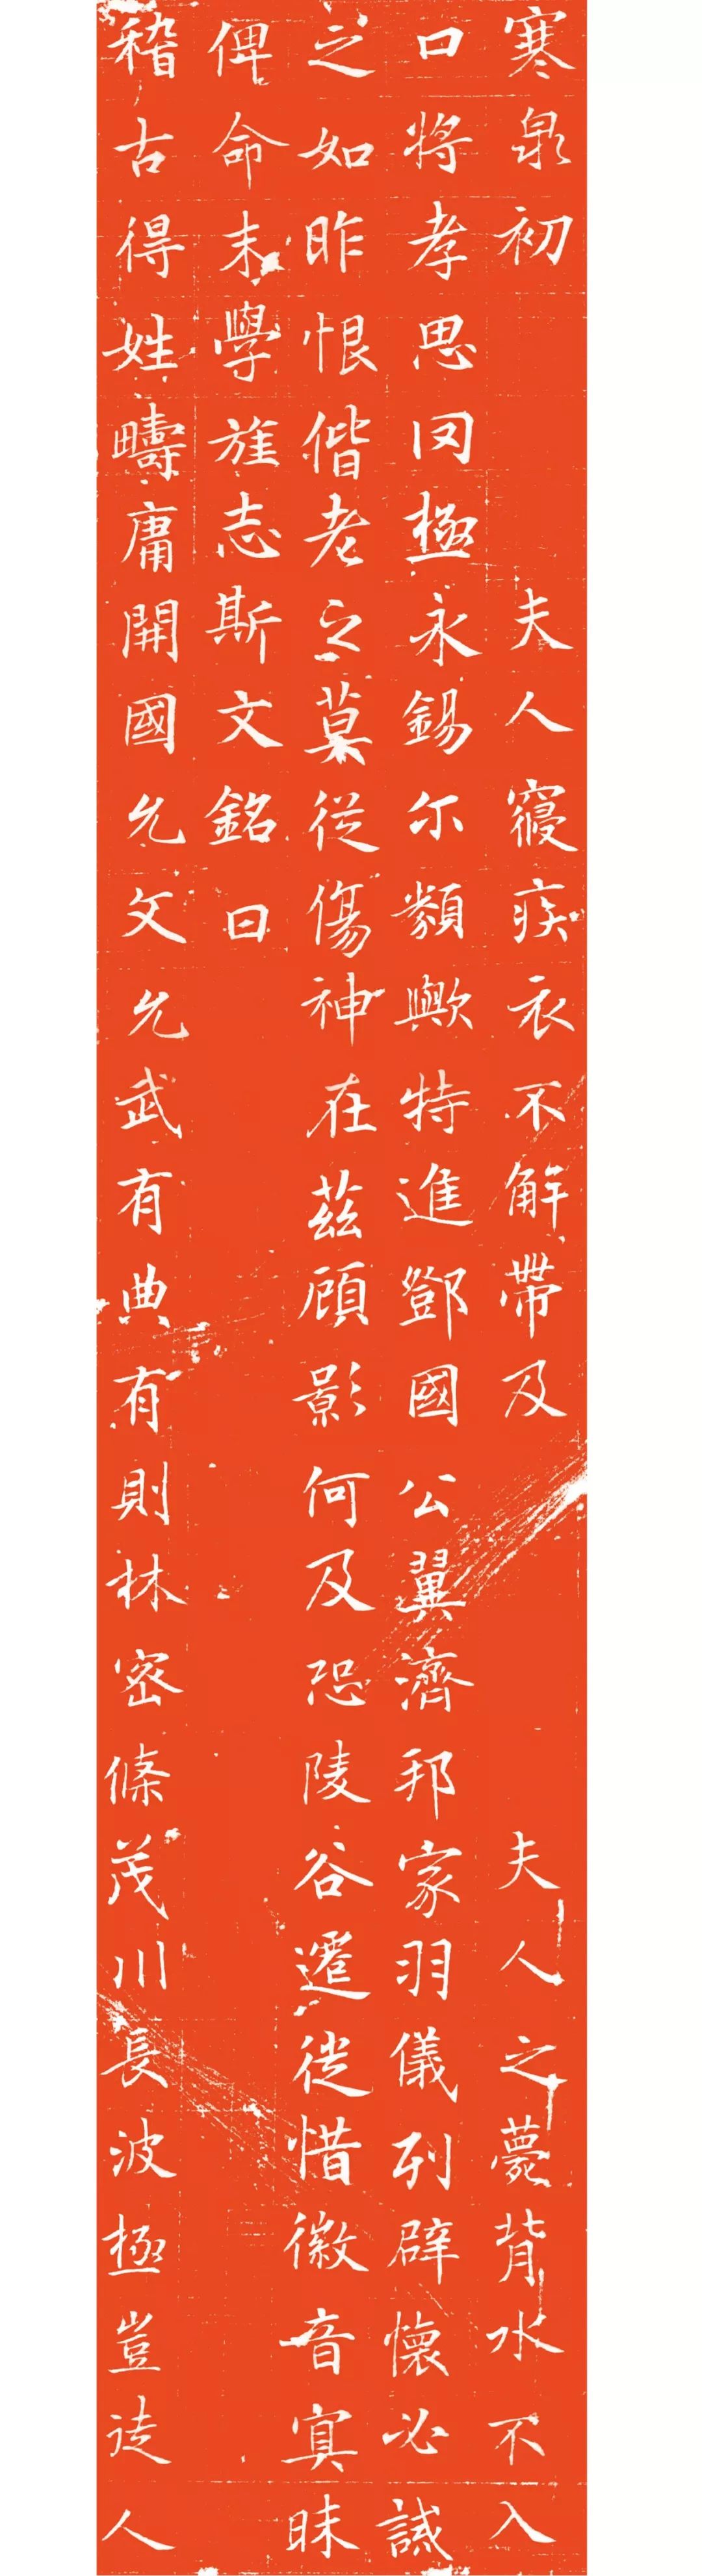 寒泉初 夫人寢疾衣不解帶及 夫人之薨背水不入
口將孝思罔極永錫尔類歟特進鄧國公翼濟邦家羽儀列辟懷必誡
之如昨恨偕老之莫從傷神在茲顧影何及恐陵谷遷徙惜徽音㝠昧
俾命末學旌志斯文銘曰
稽古得姓疇庸開國允文允武有典有則林密條茂川長波極豈徒人